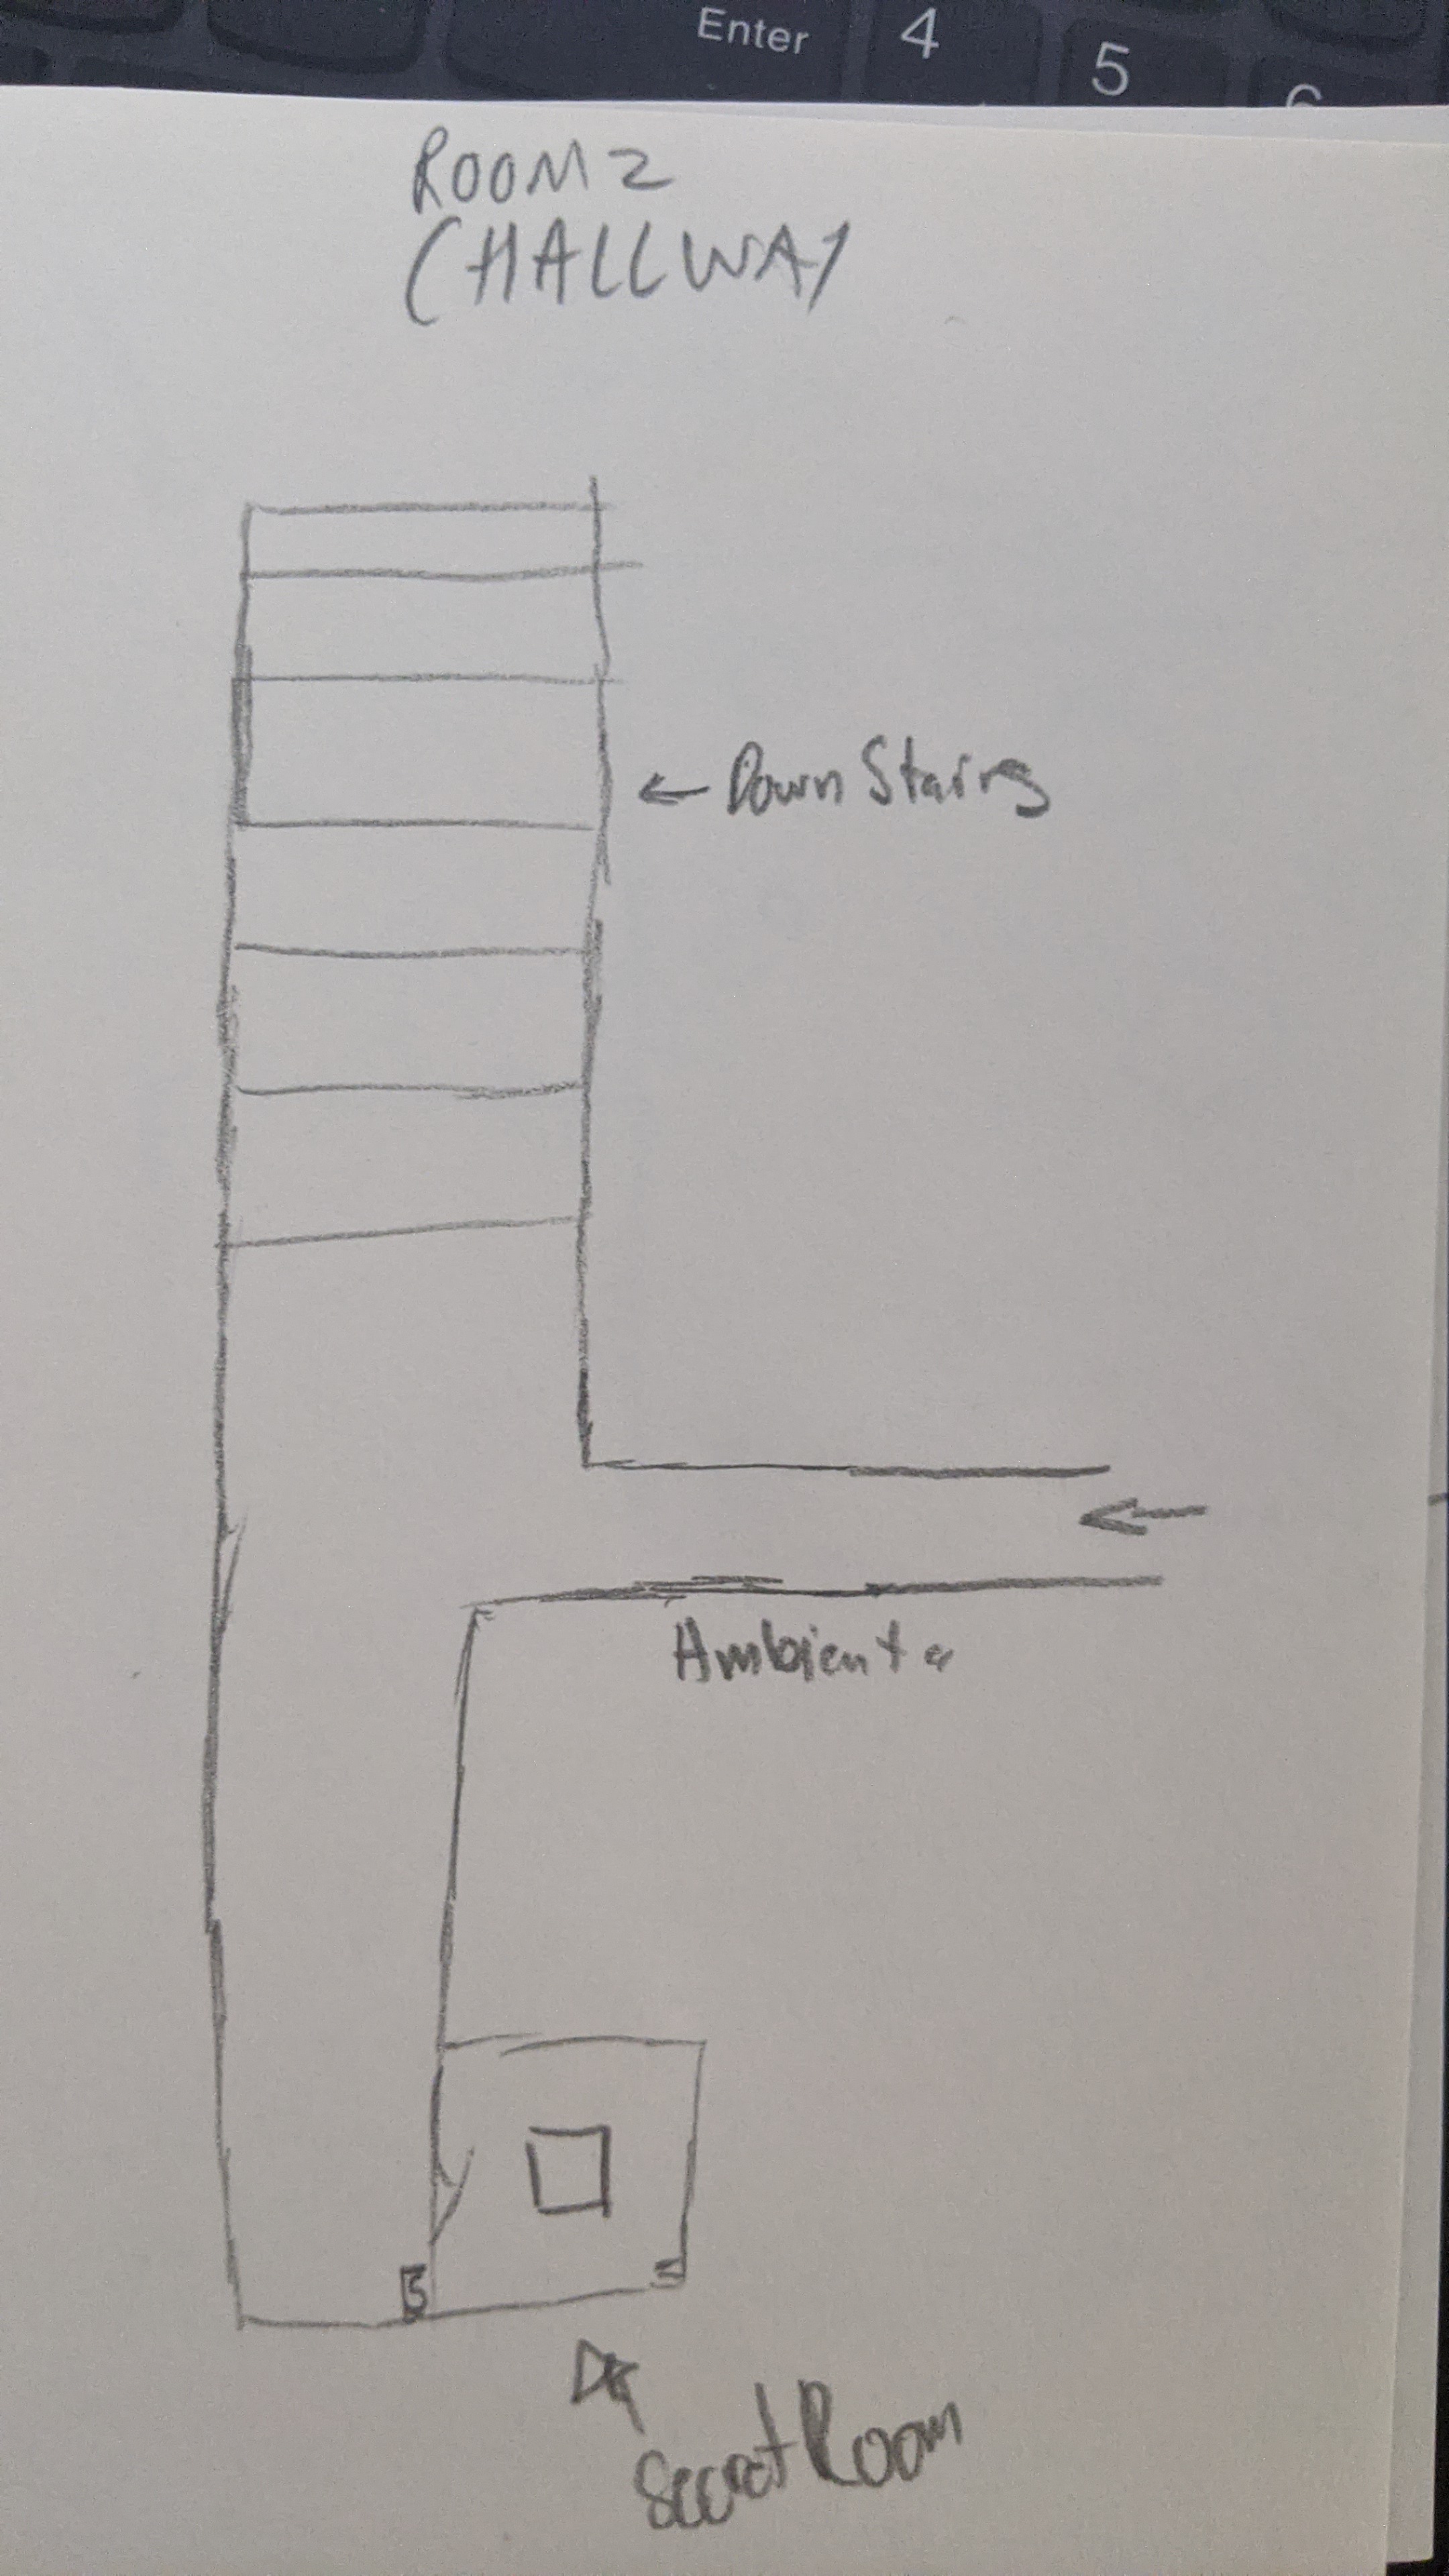 Enter 4
5
6
ROOM 2
(HALLWAY
← Down Stairs
←
Ambiente
S
Secret Room